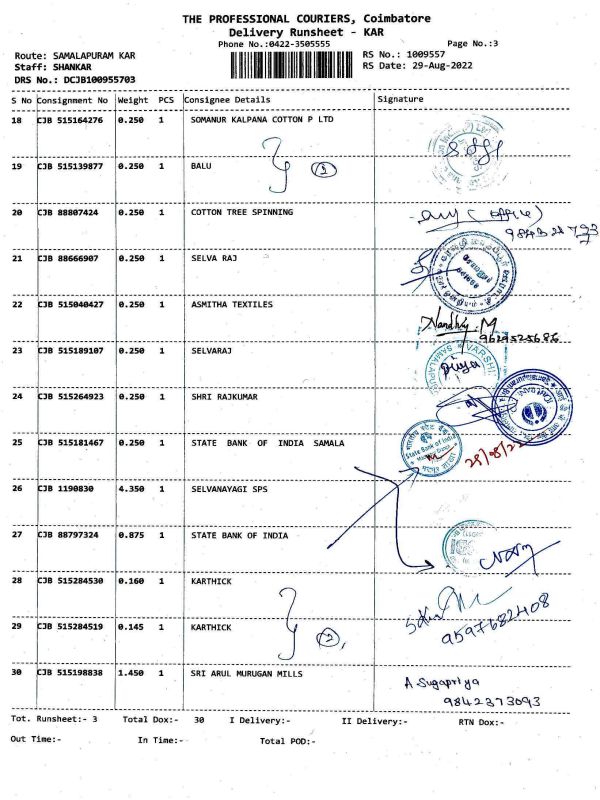 THE PROFESSIONAL COURIERS, Coimbatore
Delivery Runsheet - KAR
Phone No.:0422-3505555
Page No.:3
Route: SAMALAPURAM KAR
RS No.: 1009557
Staff: SHANKAR
RS Date: 29-Aug-2022
DRS No.: DCJB100955703
S No Consignment No Weight PCS Consignee Details Signature
18 CJB 515164276 0.250 1 SOMANUR KALPANA COTTON P LTD
19 CJB 515139877 0.250 1 BALU
20 CJB 88807424 0.250 1 COTTON TREE SPINNING
21 CJB 88666907 0.250 1 SELVA RAJ
22 CJB 515040427 0.250 1 ASMITHA TEXTILES
9629525686
23 CJB 515189107 0.250 1 SELVARAJ
VARSHI
Priya
24 CJB 515264923 0.250 1 SHRI RAJKUMAR
25 CJB 515181467 0.250 1 STATE BANK OF INDIA SAMALA
State Bank of India
26 CJB 1190830 4.350 1 SELVANAYAGI SPS
27 CJB 88797324 0.875 1 STATE BANK OF INDIA
28 CJB 515284530 0.160 1 KARTHICK
9597682408
29 CJB 515284519 0.145 1 KARTHICK
2
30 CJB 515198838 1.450 1 SRI ARUL MURUGAN MILLS
A Sugapriya
9842373093
Tot. Runsheet:- 3 Total Dox:- 30 I Delivery:- II Delivery:- RTN Dox:-
Out Time:- In Time:- Total POD:-